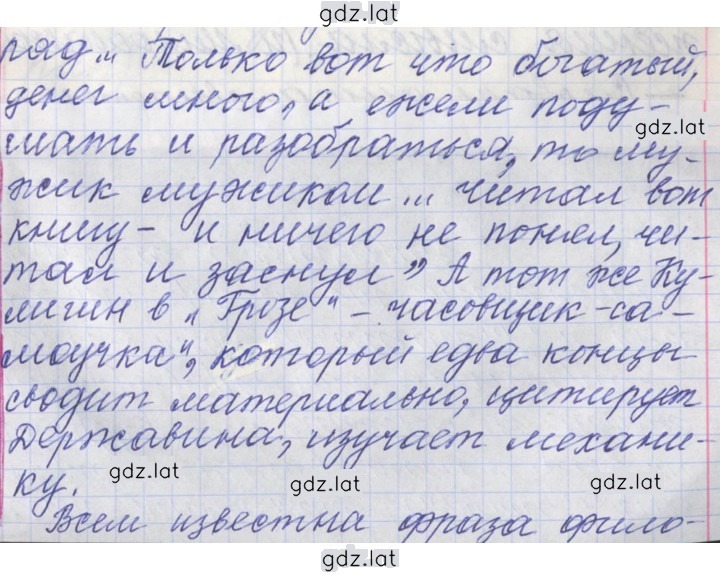 gdz.lat
ряд... Только вот что богатый,
денег много, а ежели поду-
gdz.lat
мать и разобраться, то му-
жик мужиком... читал вот
книгу - и ничего не понял, чи-
тал и заснул" А тот же Ку-
лигин в "Грозе" - часовщик-са-
моучка", который едва концы
сводит материально, цитирует
Державина, изучает механи-
ку.
gdz.lat gdz.lat gdz.lat
Всем известна фраза фило-
gdz.lat